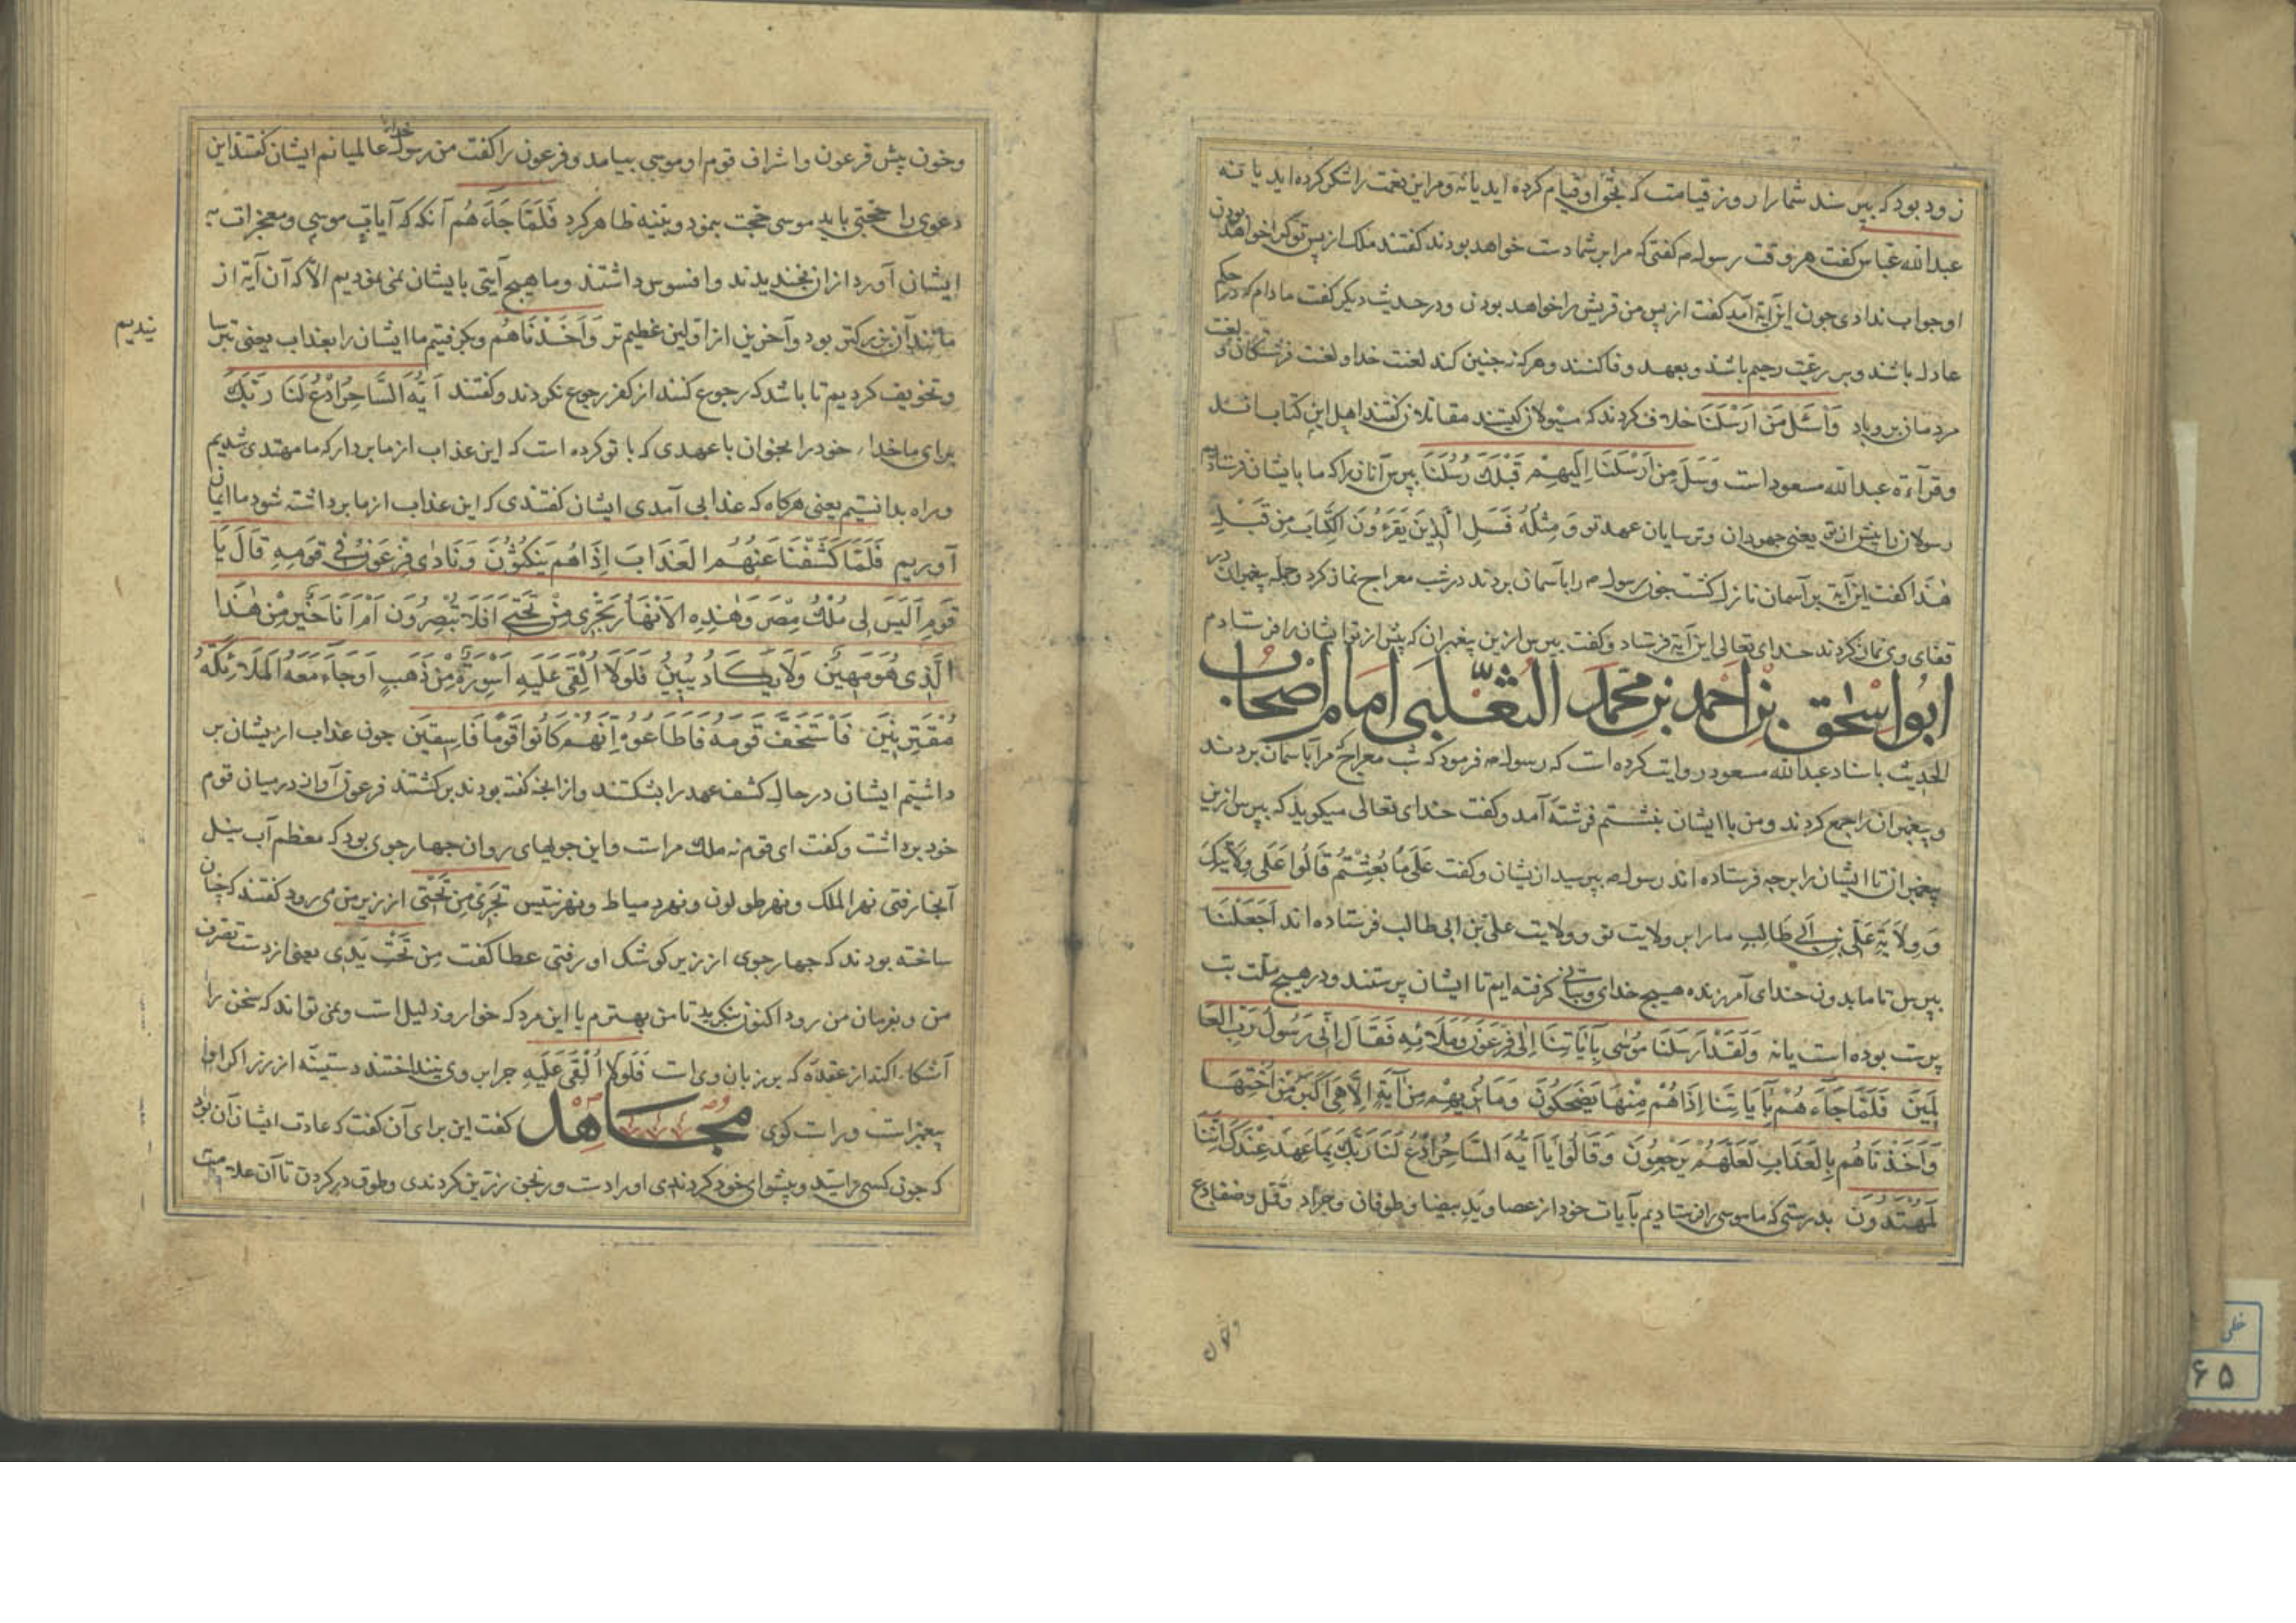 زود بود که بپرسند شما را روز قیامت که بحق او قیام کرده اید یا نه و مر این نعمت را شکر کرده اید یا نه
عبدالله عباس گفت هر وقت رسول صه گفتی که مرا بر شما دست خواهد بود ندگفتند ملک از پس تو کرا خواهد بودن
او جواب ندادی جون این آیة آمد گفت از پس من قریش را خواهد بودن و در حدیث دیکر گفت مادام که در حکم
عادل باشند و بر رعیت رحیم باشند و بعهد وفا کنند و هر که نه جنین کند لعنت خدا و لعنت فرشتکان و لعنت
مردمان برو باد وَاسْئَلْ مَنْ اَرْسَلْنَا خلاف کردند که مسئولان کیستند مقاتلان گفتند اهل این کتاب اند
و قرآءة عبدالله مسعود است وَسَلْ مَنْ اَرْسَلْنَا اِلَیهِمْ قَبْلَكَ رُسُلَنَا بپرس آنانرا که ما بایشان فرستادیم
رسولان ما پیش از تو یعنی جهودان و ترسایان عهد تو وَمِثْلُهُ فَسَلِ الَّذِینَ یَقْرَءُونَ الْکِتَابَ مِنْ قَبْلِكَ
هٰذا گفت این آیة بر آسمان نازل گشت جون رسول صه را بآسمان بردند در شب معراج نماز کرد و جمله پیغمبران در
قفای وی نماز کردند خدای تعالی این آیة فرستاد و گفت بپرس ازین پیغمبران که پیش از تو ایشان را فرستادم
ابو اسحٰق بن احمد بن محمد الثعلبی امام اصحاب
الحدیث باسناد عبدالله مسعود روایت کرده است که رسول صه فرمود که شب معراج مرا بآسمان بردند
و پیغمبران را جمع کردند و من با ایشان بنشستم فرشتهٔ آمد و گفت خدای تعالی میکوید که بپرس ازین
پیغمبران تا ایشان را بر چه فرستاده اند رسول صه بپرسید ازیشان و گفت عَلَی مَا بُعِثْتُمْ قَالُوا عَلَی وِلَایَتِكَ
وَ وِلَایَةِ عَلِّی بْنِ اَبِی طَالِبٍ ما را بر ولایت تو و ولایت علی بن ابی طالب فرستاده اند اَجَعَلْنَا
بپرس تا ما بدون خدای آمرزنده هیچ خدای و بتانی کرفته ایم تا ایشان پرستند و در هیچ ملت بت
پرست بوده است یا نه وَلَقَدْ اَرْسَلْنَا مُوسٰی بِآیَاتِنَا اِلٰی فِرْعَوْنَ وَمَلَائِهِ فَقَالَ اِنِّی رَسُولُ رَبِّ الْعَا
لَمِینَ فَلَمَّا جَآءَهُمْ بِآیَاتِنَا اِذَا هُمْ مِنْهَا یَضْحَکُونَ وَمَا نُرِیهِمْ مِنْ آیَةٍ اِلَّا هِیَ اَکْبَرُ مِنْ اُخْتِهَا
وَاَخَذْنَاهُمْ بِالْعَذَابِ لَعَلَّهُمْ یَرْجِعُونَ وَقَالُوا یَا اَیُّهَ السَّاحِرُ ادْعُ لَنَا رَبَّكَ بِمَا عَهِدَ عِنْدَكَ اِنَّنَا
لَمُهْتَدُونَ بدرستی که ما موسی را فرستادیم بآیات خود از عصا و ید بیضا و طوفان و جراد و قمل و ضفادع
و خون
و خون پیش فرعون و اشراف قوم او موسی بیامد و فرعون را گفت من رسول خدای عالمیانم ایشان گفتند این
دعوی را حجتی باید موسی حجت بنمود و بینه ظاهر کرد فَلَمَّا جَآءَهُمْ آنکه که آیات موسی و معجزات به
ایشان آورد از آن بخندیدند و افسوس داشتند و ما هیچ آیتی بایشان نمی نمودیم الا که آن آیة از
مانند آن بزرکتر بود و آخرین از اولین عظیم تر وَاَخَذْنَاهُمْ و بکرفتیم ما ایشان را بعذاب یعنی
ندیدیم
و تخویف کردیم تا باشد که رجوع کنند از کفر رجوع نکردند و گفتند اَیُّهَ السَّاحِرُ ادْعُ لَنَا رَبَّكَ
برای ما خداء خود را بخوان با عهدی که با تو کرده است که این عذاب از ما بردار که ما مهتدی شدیم
و راه بدانستیم یعنی هرکاه که عذابی آمدی ایشان گفتندی که این عذاب از ما برداشته شود ما ایمان
آوریم فَلَمَّا کَشَفْنَا عَنْهُمُ الْعَذَابَ اِذَا هُمْ یَنْکُثُونَ وَنَادٰی فِرْعَوْنُ فِی قَوْمِهِ قَالَ یَا
قَوْمِ اَلَیْسَ لِی مُلْكُ مِصْرَ وَهٰذِهِ الْاَنْهَارُ تَجْرِی مِنْ تَحْتِی اَفَلَا تُبْصِرُونَ اَمْ اَنَا خَیْرٌ مِنْ هٰذَا
الَّذِی هُوَ مَهِینٌ وَلَا یَکَادُ یُبِینُ فَلَوْلَا اُلْقِیَ عَلَیْهِ اَسْوِرَةٌ مِنْ ذَهَبٍ اَوْ جَآءَ مَعَهُ الْمَلَائِکَةُ
مُقْتَرِنِینَ فَاسْتَخَفَّ قَوْمَهُ فَاَطَاعُوهُ اِنَّهُمْ کَانُوا قَوْمًا فَاسِقِینَ جون عذاب ازیشان بر
داشتیم ایشان در حال کشف عهد را بشکستند و از انجه گفته بودند برکشتند فرعون آواز در میان قوم
خود برداشت و گفت ای قوم نه ملك مراست و این جویهای روان جهار جوی بود که معظم آب نیل
آنجا رفتی نهر الملک و نهر طولون و نهر دمیاط و نهر تنیس تَجْرِی مِنْ تَحْتِی از زیر من می رود گفتند که چنان
ساخته بودند که جهار جوی از زیر کوشک او رفتی عطا گفت مِنْ تَحْتِ یَدِی یعنی از دست تصرف
من و بفرمان من رود اکنون بنکرید تا من بهترم یا این مرد که خوار و ذلیل است و نمی تواند که سخن را
آشکارا کند از عقده که بر زبان وی است فَلَوْلَا اُلْقِیَ عَلَیْهِ جرا بر وی نینداختند دستینه از زر اکر او
پیغمبر است و راست کوی مجاهد گفت این برای آن گفت که عادت ایشان آن بود
که جون کسی را سید و پیشوای خود کردندی او را دست ورنجن زرین کردندی و طوق در کردن تا آن علامت
خطی
۶۵